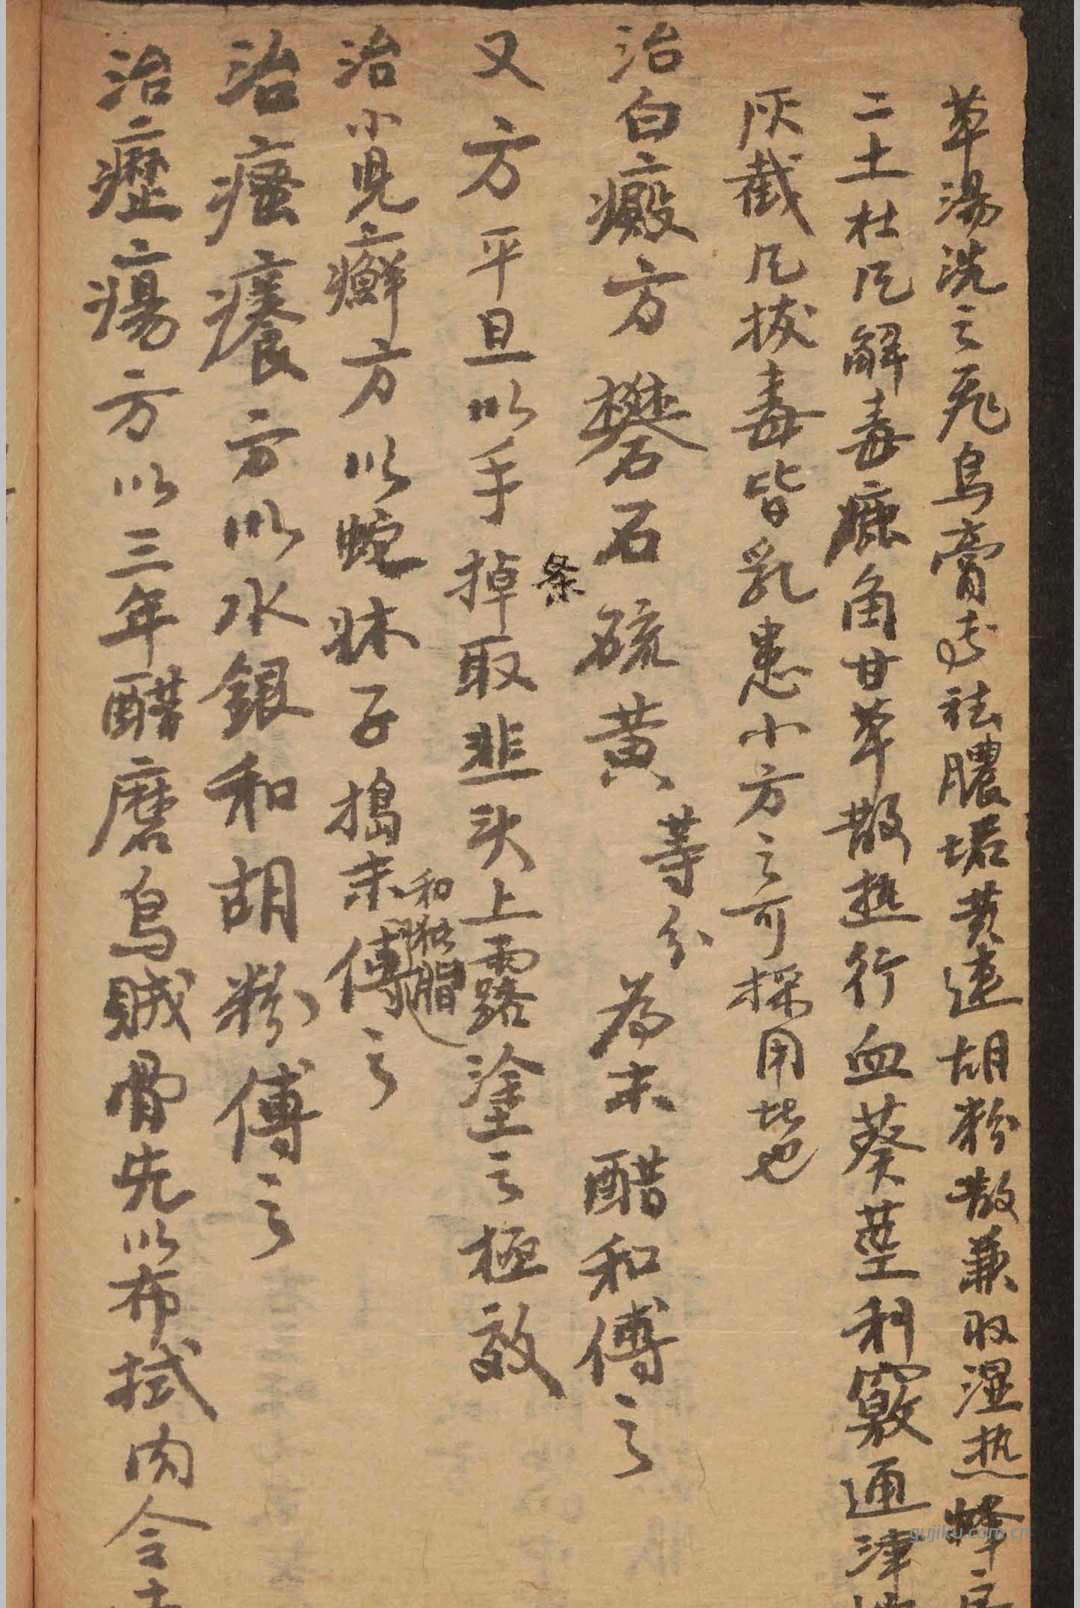 草湯洗之飛烏膏尅祛膿垢黄連胡粉散兼收湿热蜂房
二土杜瓜解毒鹿角甘草散热行血葵莖利竅通津
灰截瓜拔毒皆乳患小方之可採用者也
治白癜方礬石硫黄等分為末醋和傅之
又方平旦以手掉取韭头上露塗之極效
条
治小児癬方以蛇牀子搗末傅之
和猪脂
治瘙癢方以水銀和胡粉傅之
治癧瘍方以三年醋磨烏贼骨先以布拭肉令赤
gujiku.com.cn